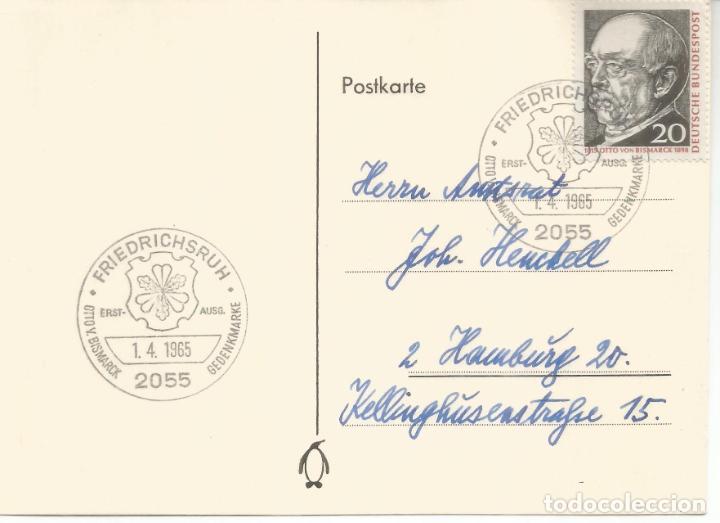 Postkarte
20
DEUTSCHE BUNDESPOST
1815 OTTO VON BISMARCK 1898
FRIEDRICHSRUH
ERST- AUSG.
OTTO V. BISMARCK GEDENKMARKE
1.4.1965
2055
Herrn Amtsrat
Joh. Henckell
2 Hamburg 20.
Kellinghusenstraße 15.
FRIEDRICHSRUH
ERST- AUSG.
OTTO V. BISMARCK GEDENKMARKE
1.4.1965
2055
todocoleccion.net